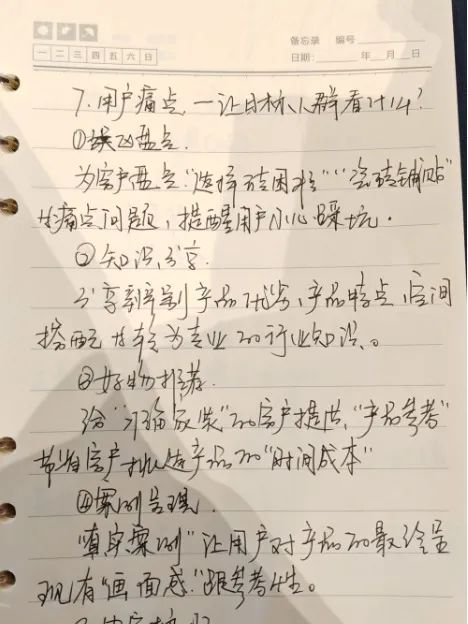 备忘录 编号
一 二 三 四 五 六 日
日期: 年 月 日
7.用户痛点,一让目标人群看什么?
①误区盘点.
为客户盘点"选择砖困难""瓷砖铺贴"
等痛点问题,提醒用户小心踩坑.
②知识分享.
分享辨别产品优劣,产品特点,空间
搭配等较为专业的行业知识。
③好物推荐.
给"准备改装"的客户提供,"产品参考"
节省客户挑选产品的"时间成本"
④案例呈现.
"真实案例"让用户对产品的最终呈
现有"画面感"跟参考性。